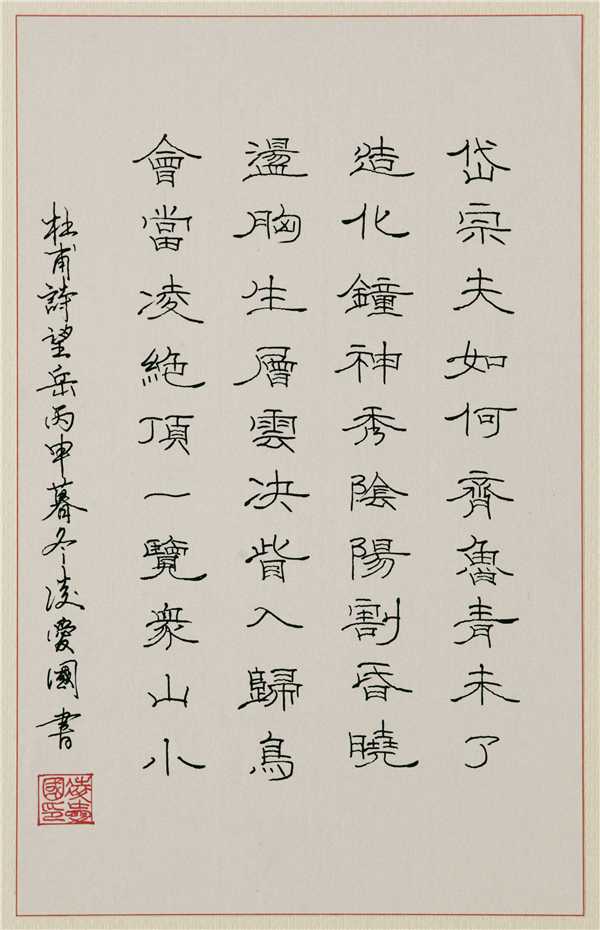 岱宗夫如何齊魯青未了
造化鐘神秀陰陽割昏曉
盪胸生層雲決眥入歸鳥
會當凌絕頂一覽衆山小
杜甫詩望岳丙申暮冬凌愛國書
凌愛國印